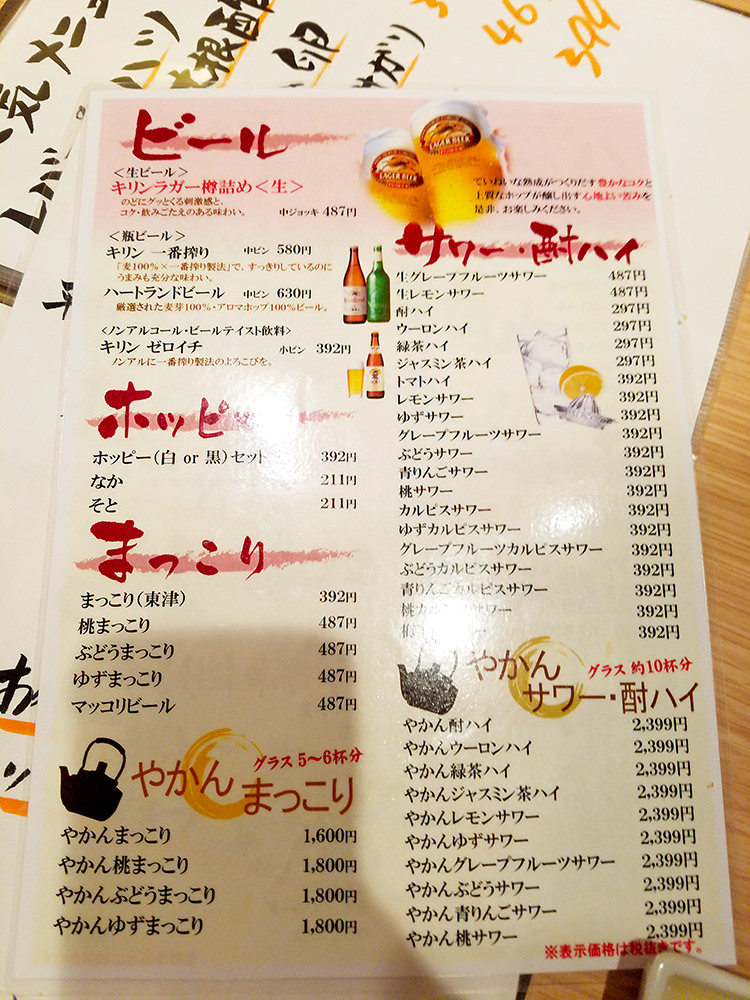 ビール
<生ビール>
キリンラガー樽詰め<生>
のどにグッとくる刺激感と、
コク・飲みごたえのある味わい。 中ジョッキ 487円
<瓶ビール>
キリン 一番搾り 中ビン 580円
「麦100%×一番搾り製法」で、すっきりしているのに
うまみも充分な味わい。
ハートランドビール 中ビン 630円
厳選された麦芽100%・アロマホップ100%ビール。
<ノンアルコール・ビールテイスト飲料>
キリン ゼロイチ 小ビン 392円
ノンアルに一番搾り製法のよろこびを。
ホッピー
ホッピー(白 or 黒)セット 392円
なか 211円
そと 211円
まっこり
まっこり(東津) 392円
桃まっこり 487円
ぶどうまっこり 487円
ゆずまっこり 487円
マッコリビール 487円
やかん グラス 5〜6杯分
まっこり
やかんまっこり 1,600円
やかん桃まっこり 1,800円
やかんぶどうまっこり 1,800円
やかんゆずまっこり 1,800円
LAGER BEER
ていねいな熟成がつくりだす豊かなコクと
上質なホップが醸し出す心地よい苦みを
是非、お楽しみください。
サワー・酎ハイ
生グレープフルーツサワー 487円
生レモンサワー 487円
酎ハイ 297円
ウーロンハイ 297円
緑茶ハイ 297円
ジャスミン茶ハイ 297円
トマトハイ 392円
レモンサワー 392円
ゆずサワー 392円
グレープフルーツサワー 392円
ぶどうサワー 392円
青りんごサワー 392円
桃サワー 392円
カルピスサワー 392円
ゆずカルピスサワー 392円
グレープフルーツカルピスサワー 392円
ぶどうカルピスサワー 392円
青りんごカルピスサワー 392円
桃カルピスサワー 392円
392円
やかん グラス 約10杯分
サワー・酎ハイ
やかん酎ハイ 2,399円
やかんウーロンハイ 2,399円
やかん緑茶ハイ 2,399円
やかんジャスミン茶ハイ 2,399円
やかんレモンサワー 2,399円
やかんゆずサワー 2,399円
やかんグレープフルーツサワー 2,399円
やかんぶどうサワー 2,399円
やかん青りんごサワー 2,399円
やかん桃サワー 2,399円
※表示価格は税抜きです。